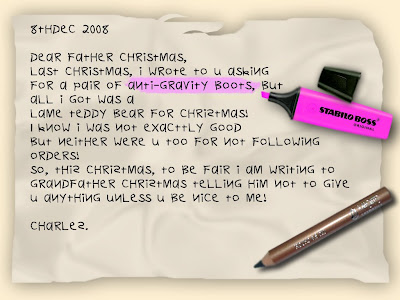 8thDec 2008
Dear Father Christmas,
Last Christmas, i wrote to u asking
for a pair of anti-gravity boots, but
all i got was a
lame teddy bear for Chriztmas!
I know i was not exacttly good
but neither were u too for not following
orderz!
So, thiz Chriztmas, to be fair i am writing to
Grandfather Chriztmas telling him not to give
u anything unless u be nice to me!
Charlez.
STABILO BOSS
ORIGINAL